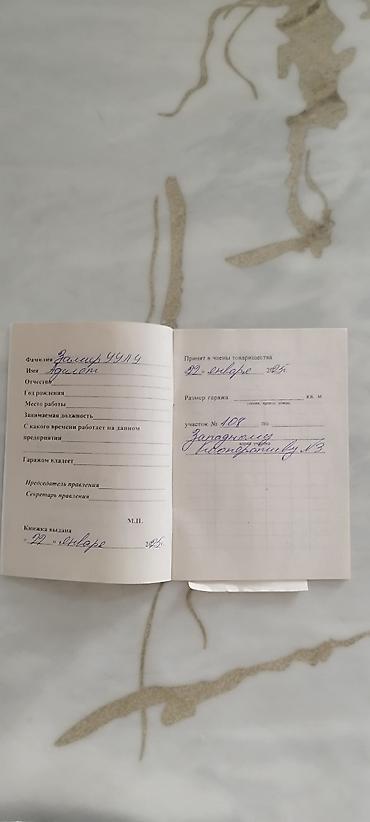 Фамилия Замир уулу
Имя Адилет
Отчество
Год рождения
Место работы
Занимаемая должность
С какого времени работает на данном
предприятии
Гаражом владеет
Председатель правления
Секретарь правления
М.П.
Книжка выдана
"22" января 2025г.
Принят в члены товарищества
22 января 2025г.
Размер гаража кв. м
участок № 108 по
Западному
Кооперативу №3